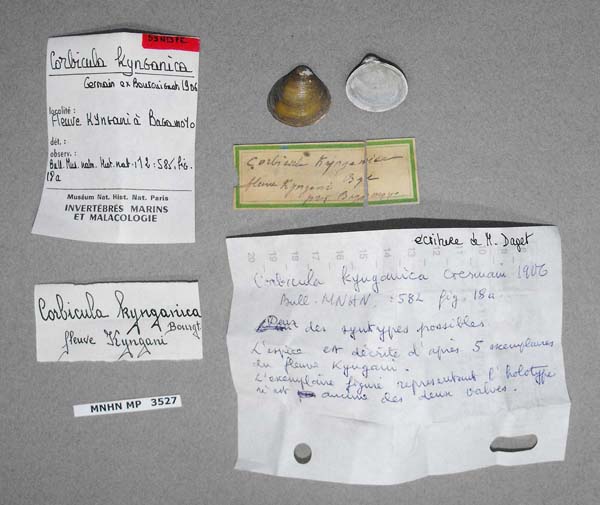 SYNTYPE
Corbicula kynganica
Germain ex Bourguignat 1906
localité :
fleuve Kyngani à Bagamoyo
dét. :
observ. :
Bull. Mus. natn. Hist. nat. : 12 : 582, fig.
18a
Muséum Nat. Hist. Nat. Paris
INVERTÉBRÉS MARINS
ET MALACOLOGIE
Corbicula Kynganica
fleuve Kyngani Bgt
près Bagamoyo
Corbicula kynganica
Bourgt
fleuve Kyngani
MNHN MP 3527
écriture de M. Daget
20 19 18 17 16 15 14 13
Corbicula kynganica Germain 1906
Bull. MNHN. : 582 fig. 18a
des syntypes possibles
L'espèce est décrite d'après 5 exemplaires
du fleuve Kyngani.
L'exemplaire figuré représentant l'holotype
n'est aucune des deux valves.